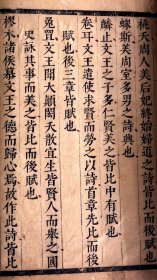 桃夭周人美后妃終始婦道之詩興也
螽斯美周室多男之詩興也
麟止文王之子多仁賢美之皆比中有賦也
卷耳文王遣使求賢而勞之以詩首章先比而後
賦也後三章皆賦也
兔罝文王聞太顚閎夭散宜生皆賢人而舉之國
史詠其事而美之皆比而後賦也
樛木諸侯慕文王之德而歸心焉故作此詩皆比